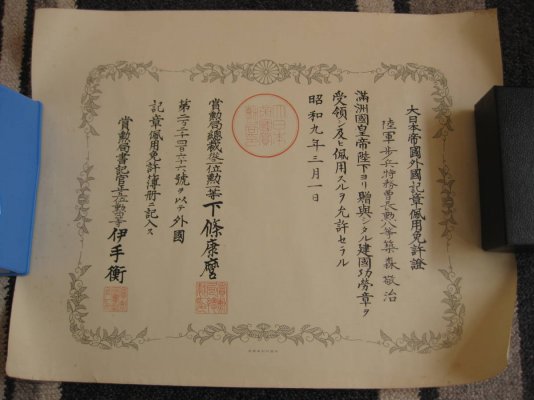 大日本帝國外國記章佩用免許證
陸軍歩兵特務曹長勲八等築森敬治
滿洲國皇帝陛下ヨリ贈與シタル建國功勞章ヲ
受領シ及ヒ佩用スルヲ允許セラル
昭和九年三月一日
賞勲局總裁 位勲 等下條康麿
第二万二千四百六十六號ヲ以テ外國
記章佩用免許簿册ニ記入ス
賞勲局書記官 位勲 等伊手衡